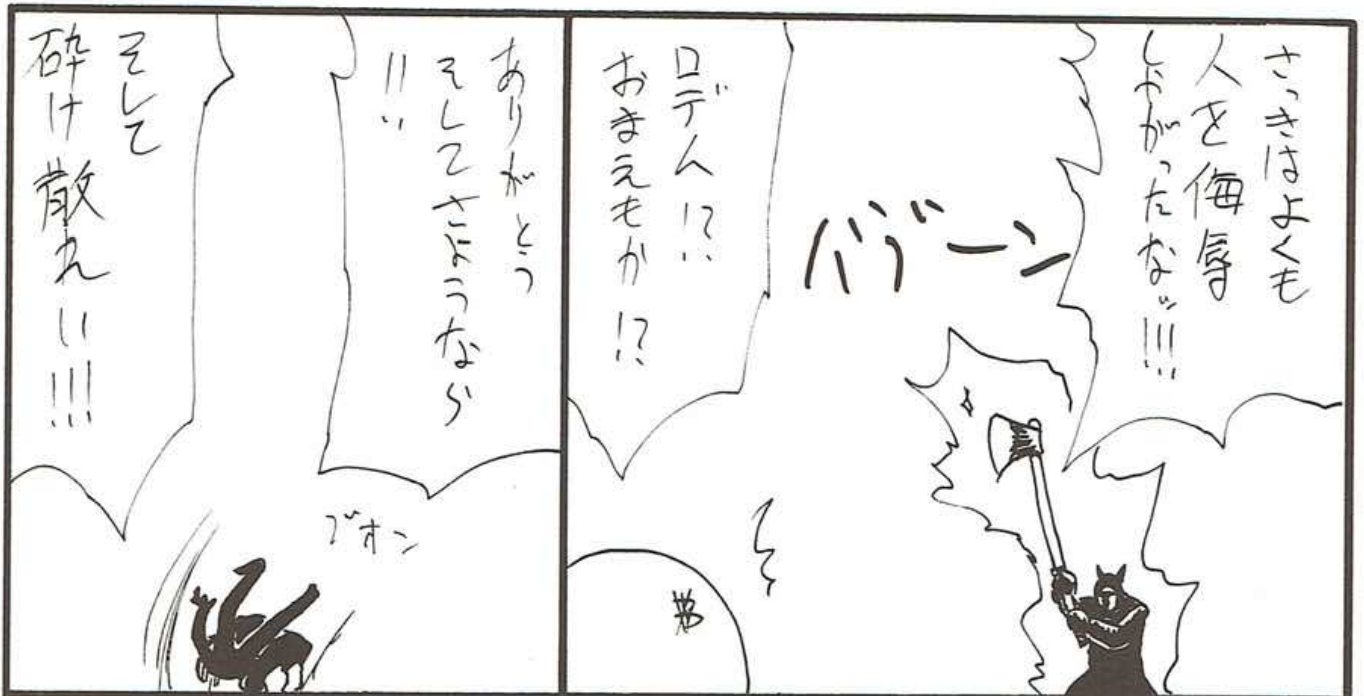 さっきはよくも
人を侮辱
しやがったなッ!!!
バーン
ロデム!?
おまえもか!?
ありがとう
そしてさようなら
!!!
ブオン
そして
砕け散れい!!!